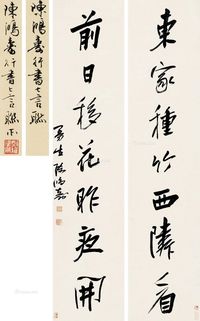 東家種竹西隣看
前日移花昨夜開
曼生陳鴻壽
陳鴻壽行書七言聯
陳鴻壽行書七言聯